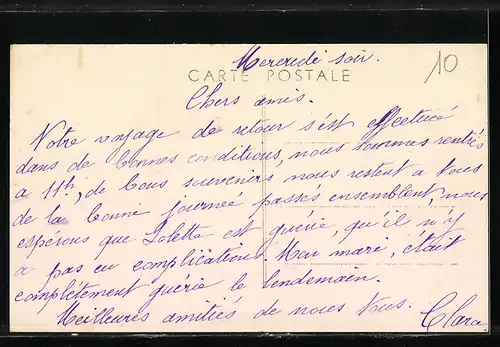 Mercredi soir.
10
CARTE POSTALE
Chers amis.
Notre voyage de retour s'est effectué
dans de bonnes conditions, nous sommes rentrés
a 11h, de bons souvenirs nous restent a tous
de la bonne journée passés ensemblent, nous
espérons que Lolette est guérie, qu'il n'y
a pas eu complications. Mon mari, était
complétement guérie le lendemain.
Meilleures amitiés de nous tous.
Clara.